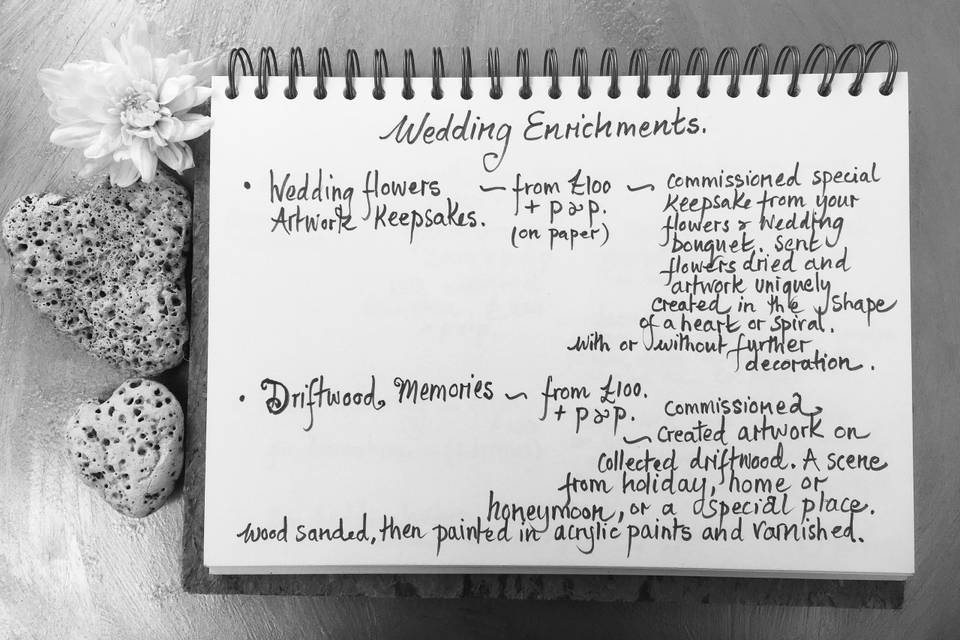 Wedding Enrichments.
• Wedding flowers ~ from £100 ~ commissioned special
Artwork Keepsakes. + p & p. keepsake from your
(on paper) flowers & Wedding
bouquet. Sent
flowers dried and
artwork uniquely
created in the shape
of a heart or spiral.
with or without further
decoration.
• Driftwood Memories ~ from £100.
+ p & p. commissioned,
~ Created artwork on
collected driftwood. A scene
from holiday, home or
honeymoon, or a special place.
wood sanded, then painted in acrylic paints and varnished.